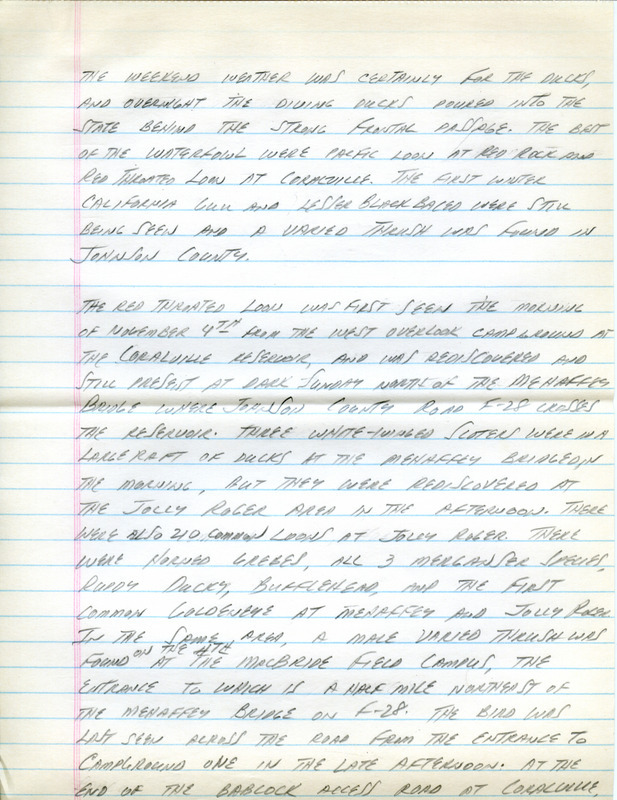 THE WEEKEND WEATHER WAS CERTAINLY FOR THE DUCKS,
AND OVERNIGHT THE DIVING DUCKS POURED INTO THE
STATE BEHIND THE STRONG FRONTAL PASSAGE. THE BEST
OF THE WATERFOWL WERE PACIFIC LOON AT RED ROCK AND
RED THROATED LOON AT CORALVILLE. THE FIRST WINTER
CALIFORNIA GULL AND LESSER BLACK BACKED WERE STILL
BEING SEEN AND A VARIED THRUSH WAS FOUND IN
JOHNSON COUNTY.
THE RED THROATED LOON WAS FIRST SEEN THE MORNING
OF NOVEMBER 4TH FROM THE WEST OVERLOOK CAMPGROUND AT
THE CORALVILLE RESERVOIR, AND WAS REDISCOVERED AND
STILL PRESENT AT DARK SUNDAY NORTH OF THE MEHAFFEY
BRIDGE WHERE JOHNSON COUNTY ROAD F-28 CROSSES
THE RESERVOIR. THREE WHITE-WINGED SCOTERS WERE IN A
LARGE RAFT OF DUCKS AT THE MEHAFFEY BRIDGE IN
THE MORNING, BUT THEY WERE REDISCOVERED AT
THE JOLLY ROGER AREA IN THE AFTERNOON. THERE
WERE ALSO 210 COMMON LOONS AT JOLLY ROGER. THERE
WERE HORNED GREBES, ALL 3 MERGANSER SPECIES,
RUDDY DUCKS, BUFFLEHEAD, AND THE FIRST
COMMON GOLDENEYE AT MEHAFFEY AND JOLLY ROGER.
IN THE SAME AREA, A MALE VARIED THRUSH WAS
FOUND ON THE 4TH AT THE MACBRIDE FIELD CAMPUS, THE
ENTRANCE TO WHICH IS A HALF MILE NORTHEAST OF
THE MEHAFFEY BRIDGE ON F-28. THE BIRD WAS
LAST SEEN ACROSS THE ROAD FROM THE ENTRANCE TO
CAMPGROUND ONE IN THE LATE AFTERNOON. AT THE
END OF THE BABCOCK ACCESS ROAD AT CORALVILLE,